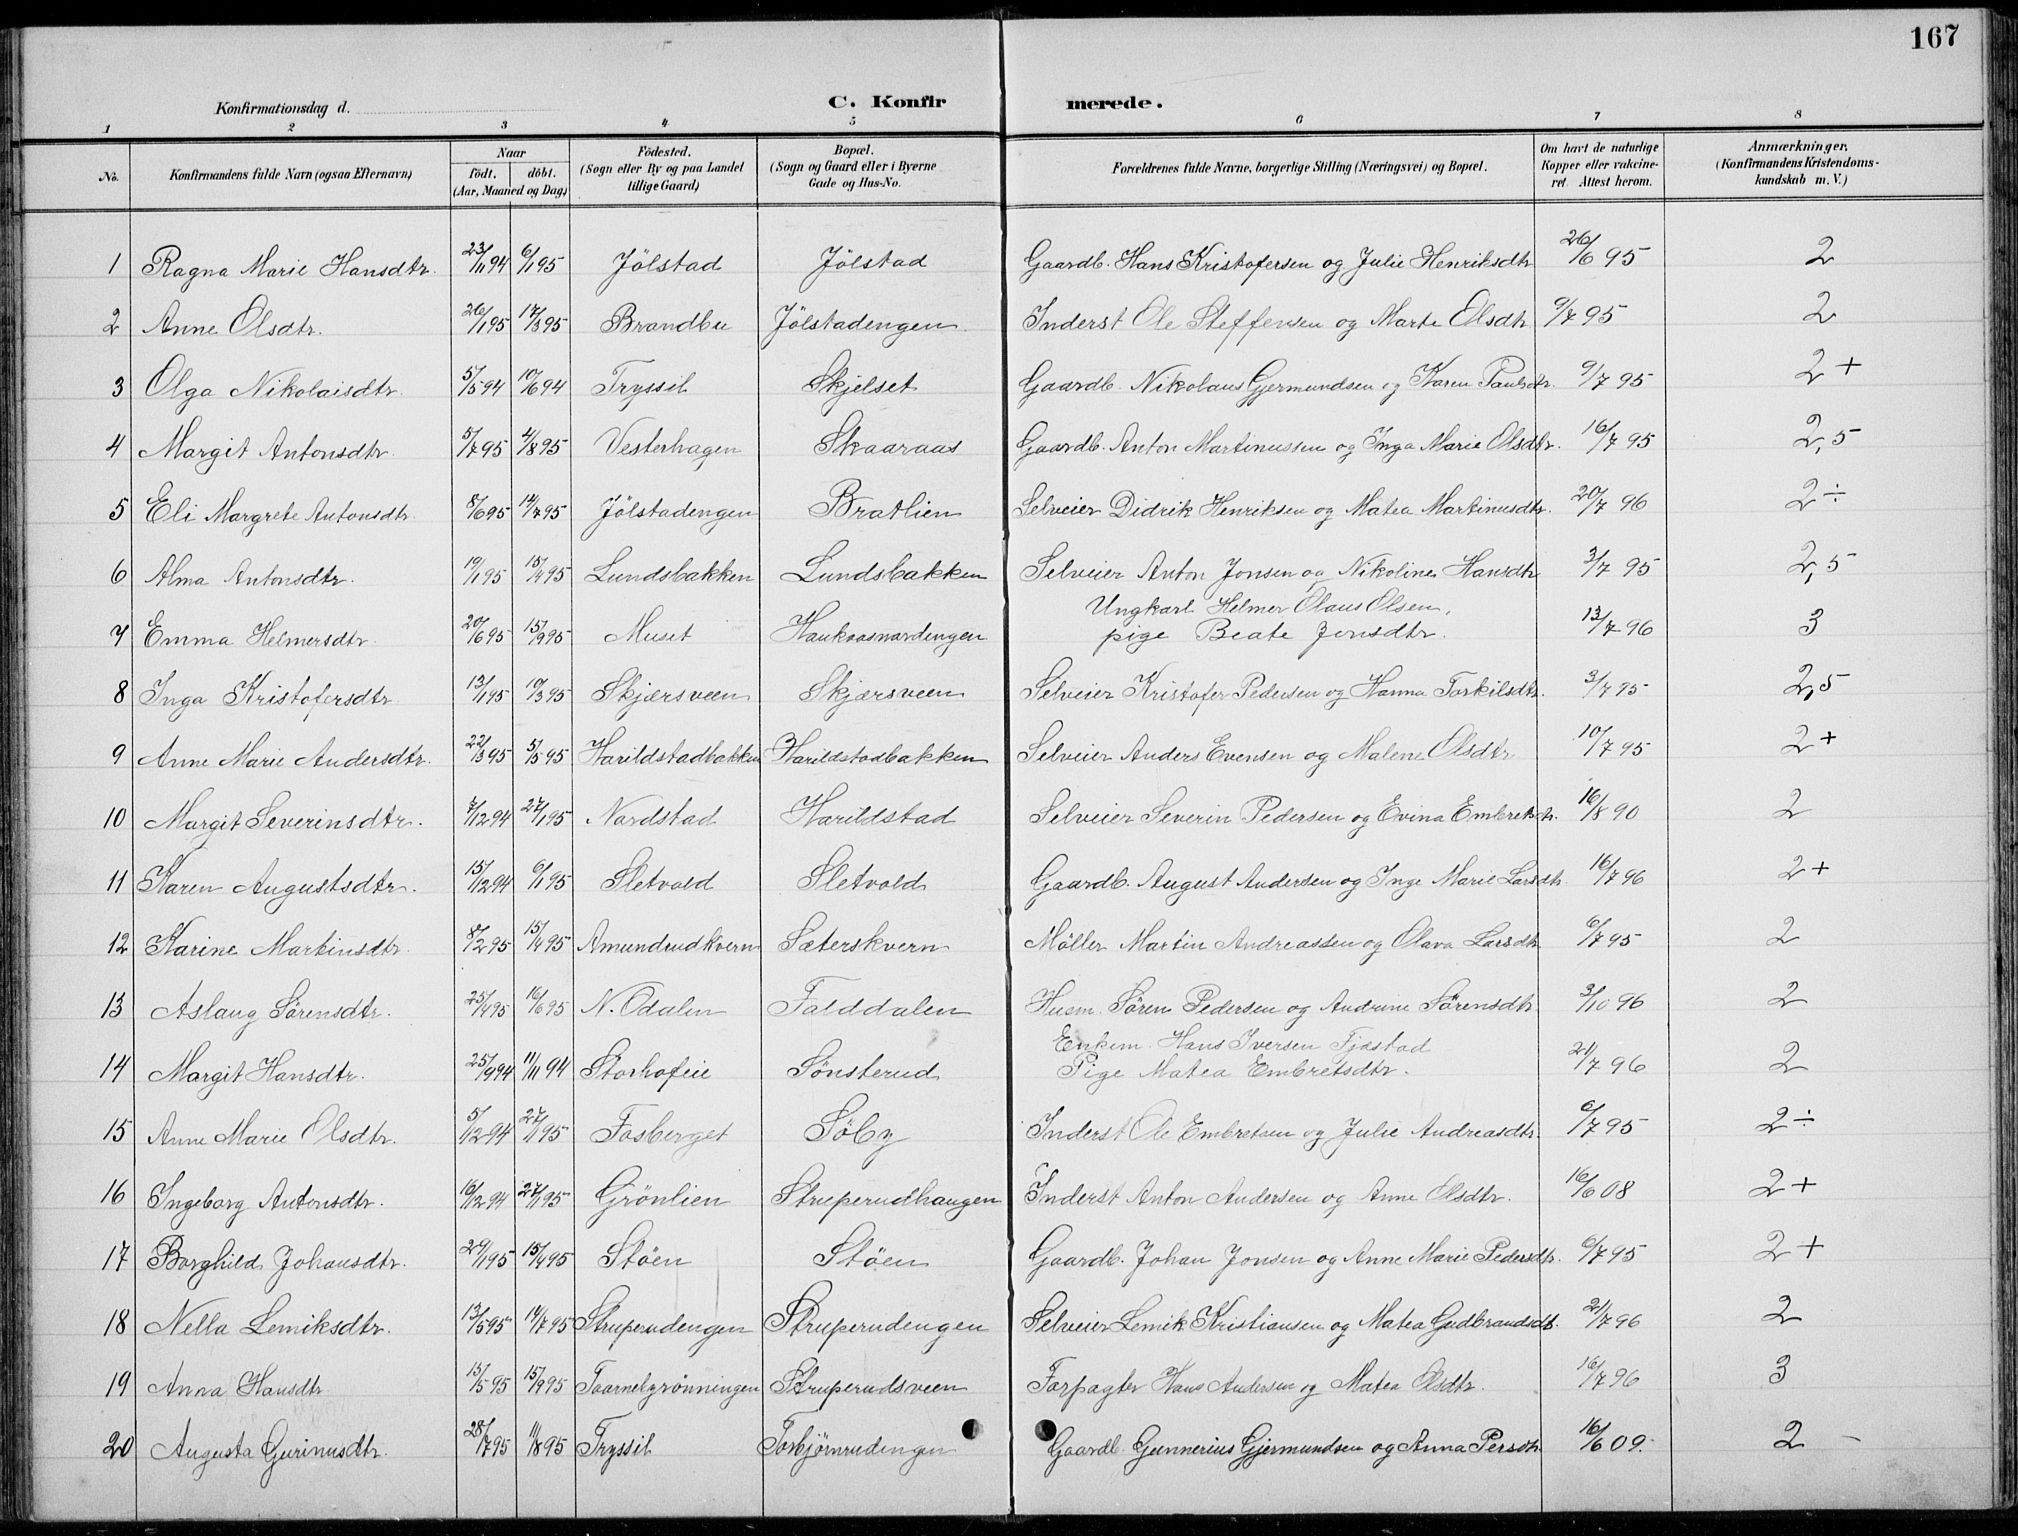 167
Konfirmationsdag d.
C. Konfirmerede.
1 2 3 4 5 6 7 8
No. Konfirmandens fulde Navn (ogsaa Efternavn) Naar födt. döbt. (Aar, Maaned og Dag) Födested. (Sogn eller By og paa Landet tillige Gaard) Bopæl. (Sogn og Gaard eller i Byerne Gade og Hus-No. Forældrenes fulde Navne, borgerlige Stilling (Næringsvei) og Bopæl. Om havt de naturlige Kopper eller vakcineret. Attest herom. Anmærkninger, (Konfirmandens Kristendomskundskab m. V.)
1 Ragna Marie Hansdtr. 23/11 94 6/1 95 Jölstad Jölstad Gaardb. Hans Kristofersen og Julie Henriksdtr 26/6 95 2
2 Anne Olsdtr. 26/1 95 17/3 95 Brandbu Jölstadengen Inderst Ole Steffensen og Marte Olsdtr 9/7 95 2
3 Olga Nikolaisdtr. 5/5 94 10/6 94 Tryssil Skjelset Gaardb. Nikolaus Gjermundsen og Karen Paulsdtr. 9/7 95 2+
4 Margit Antonsdtr. 5/7 95 4/8 95 Vesterhagen Skaaraas Gaardb. Anton Martinussen og Inga Marie Olsdtr. 16/7 95 2,5
5 Eli Margrete Antonsdtr. 8/6 95 14/7 95 Jölstadengen Bratlien Selveier Didrik Henriksen og Matea Martinusdtr. 20/7 96 2÷
6 Alma Antonsdtr. 19/1 95 15/4 95 Lundsbakken Lundsbakken Selveier Anton Jonsen og Nikoline Hansdtr 3/7 95 2,5
Ungkarl Helmer Olaus Olsen,
7 Emma Helmersdtr. 20/6 95 15/9 95 Muset Haukaasnardengen pige Beate Jensdtr. 13/7 96 3
8 Inga Kristofersdtr. 13/1 95 10/3 95 Skjærsveen Skjærsveen Selveier Kristofer Pedersen og Hanna Torkilsdtr. 3/7 95 2,5
9 Anne Marie Andersdtr. 22/3 95 5/5 95 Harildstadbakken Harildstadbakken Selveier Anders Evensen og Malene Olsdtr 10/7 95 2+
10 Margit Severinsdtr. 7/12 94 27/1 95 Nordstad Harildstad Selveier Severin Pedersen og Evina Embretsdtr. 16/8 90 2
11 Karen Augustsdtr. 15/12 94 6/1 95 Sletvold Sletvold Gaardb. August Andersen og Inge Marie Larsdtr. 16/7 96 2+
12 Karine Martinsdtr. 8/2 95 15/4 95 Amundrudkvern Sæterskvern Möller Martin Andreassen og Olava Larsdtr 6/7 95 2
13 Aslaug Sörensdtr. 25/4 95 16/6 95 N. Odalen Falddalen Husm. Sören Pedersen og Andrine Sörensdtr. 3/10 96 2
Enkem. Hans Iversen Tjostad
14 Margit Hansdtr. 25/9 94 11/11 94 Storhofeie Sönsterud Pige Matea Embretsdtr. 21/7 96 2
15 Anne Marie Olsdtr. 5/12 94 27/1 95 Fosberget Söby Inderst Ole Embretsen og Julie Andreasdtr. 6/7 95 2÷
16 Ingeborg Antonsdtr. 16/12 94 27/1 95 Grönlien Struperudhaugen Inderst Anton Andersen og Anne Olsdtr. 16/6 08 2+
17 Borghild Johansdtr. 29/1 95 15/4 95 Stöen Stöen Gaardb. Johan Jonsen og Anne Marie Pedersdtr. 6/7 95 2+
18 Nella Lemiksdtr. 13/5 95 14/7 95 Struperudengen Struperudengen Selveier Lemik Kristiansen og Matea Gudbrandsdtr. 21/7 96 2
19 Anna Hansdtr 15/5 95 15/9 95 Taarnebyrönningen Struperudsveen Forpagter Hans Andersen og Matea Olsdtr. 16/7 96 3
20 Augusta Gurinusdtr. 28/7 95 11/8 95 Tryssil Torbjörnrudengen Gaardb. Gunnerius Gjermundsen og Anna Persdtr. 16/6 09. 2 –